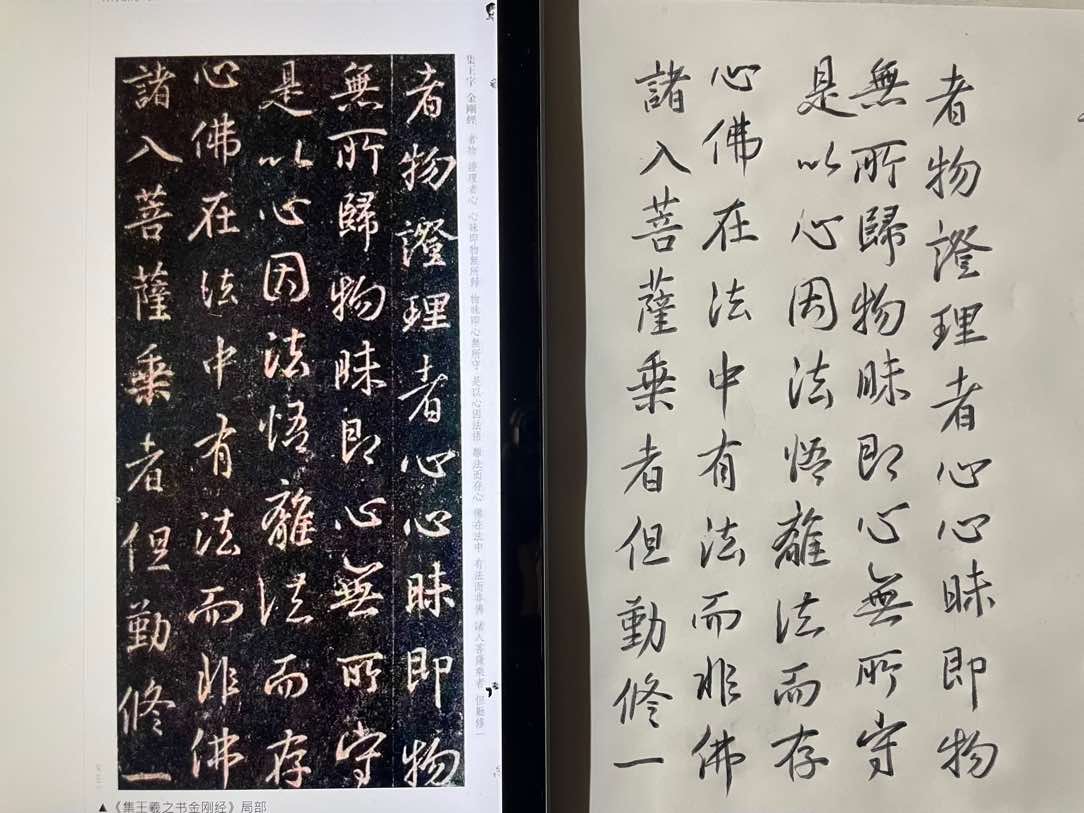 集王字 金剛經 者物 證理者心 心昧即物無所歸 物昧即心無所守 是以心因法悟 離法而存心 佛在法中 有法而非佛 諸入菩薩乘者 但勤修一
者物證理者心心昧即物
無所歸物昧即心無所守
是以心因法悟離法而存
心佛在法中有法而非佛
諸入菩薩乘者但勤修一
▲《集王羲之书金刚经》局部
者物證理者心心昧即物
無所歸物昧即心無所守
是以心因法悟離法而存
心佛在法中有法而非佛
諸入菩薩乘者但勤修一